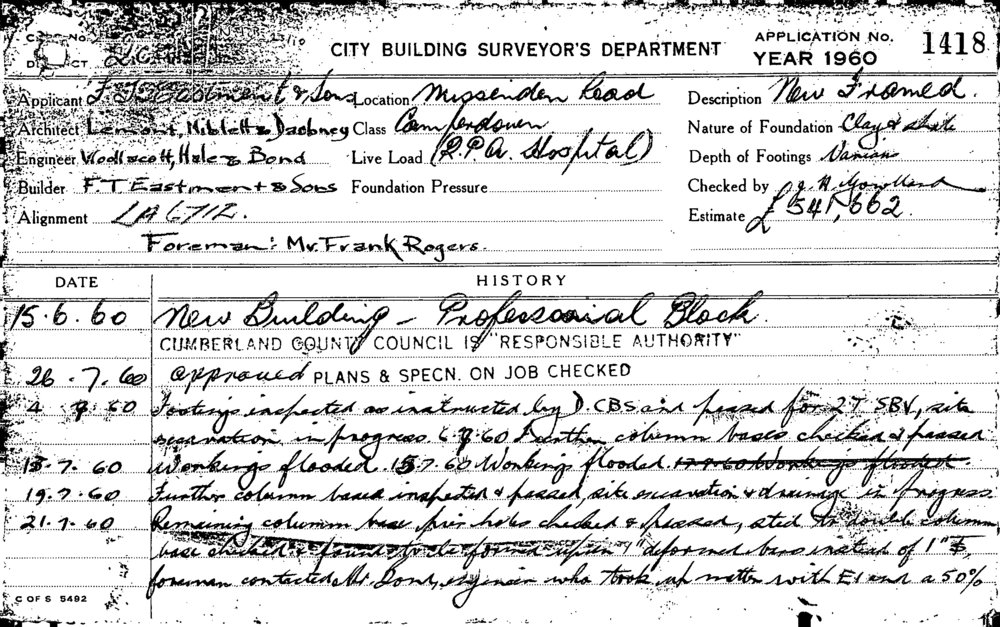 CITY BUILDING SURVEYOR'S DEPARTMENT
APPLICATION No. 1418
YEAR 1960
Applicant F. T. Eastment & Sons Location Missenden Road Description New Framed.
Architect Lemont, Niblett & Daubney Class Camperdown Nature of Foundation Clay & shale
Engineer Woolacott, Hale & Bond Live Load (R.P.A. Hospital) Depth of Footings Various
Builder F. T. Eastment & Sons Foundation Pressure Checked by
Alignment LA 6712. Estimate £ 541,662.
Foreman: Mr. Frank Rogers.
DATE HISTORY
15.6.60 New Building - Professorial Block.
CUMBERLAND COUNTY COUNCIL IS "RESPONSIBLE AUTHORITY"
26.7.60 approved PLANS & SPECN. ON JOB CHECKED
4 7 60 Footings inspected as instructed by D. CBS and passed for 2T SBV, site
excavation in progress. 6.7.60 Further column bases checked & passed
15.7.60 Workings flooded. 15.7.60 Workings flooded. 17.7.60 Workings flooded.
19.7.60 Further column bases inspected & passed, site excavation & drainage in progress.
21.7.60 Remaining column base pier holes checked & passed, steel to double column
base checked & found to be formed upon 1" deformed bars instead of 1"
foreman contacted Mr. Bond, engineer who took up matter with and a 50%
C OF S 5492